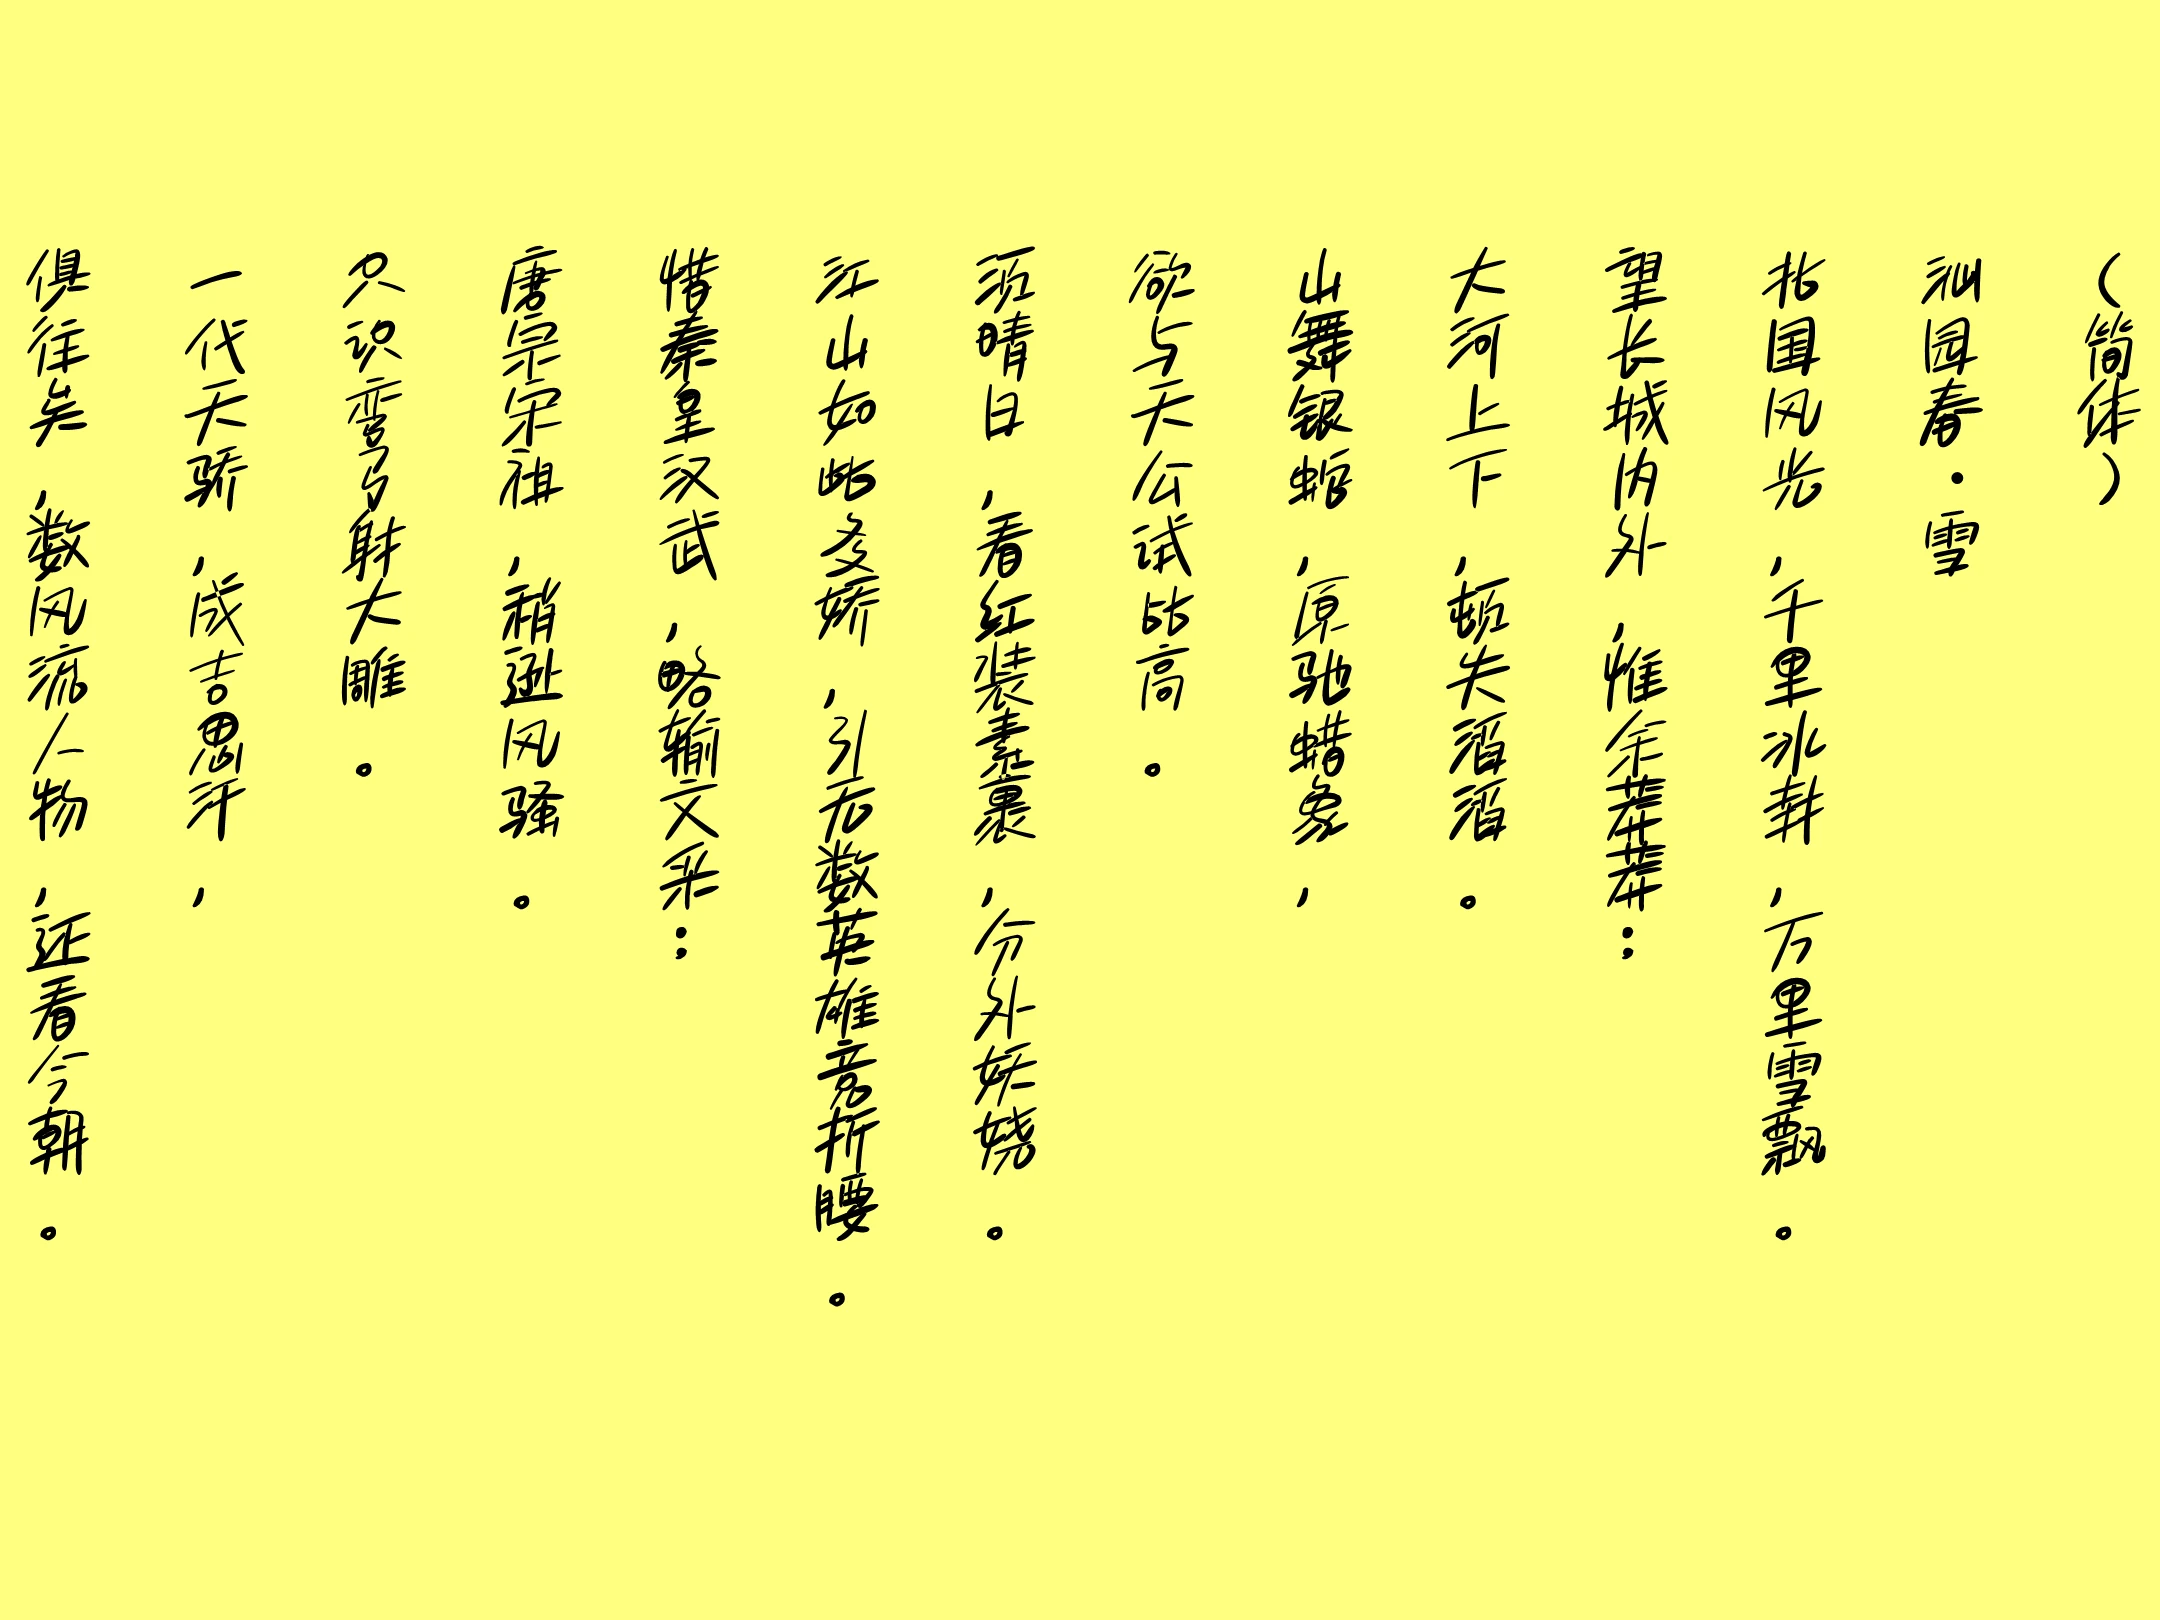 （简体）
沁园春·雪
北国风光，千里冰封，万里雪飘。
望长城内外，惟余莽莽；
大河上下，顿失滔滔。
山舞银蛇，原驰蜡象，
欲与天公试比高。
须晴日，看红装素裹，分外妖娆。
江山如此多娇，引无数英雄竞折腰。
惜秦皇汉武，略输文采；
唐宗宋祖，稍逊风骚。
只识弯弓射大雕。
一代天骄，成吉思汗，
俱往矣，数风流人物，还看今朝。